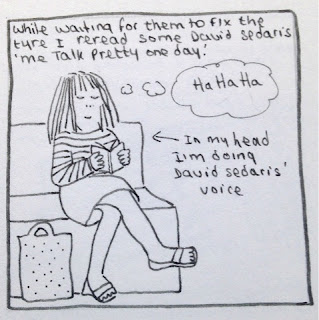 While waiting for them to fix the
tyre I reread some David Sedaris
'me Talk Pretty one day.'
Ha Ha Ha
← In my head
I'm doing
David Sedaris'
voice